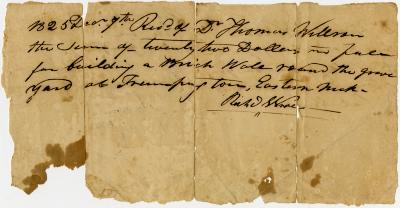 1825 Decr 9th Recd of Dr Thomas Willson
the Sum of twenty two Dollars in full
for building a Brick Wale round the grave
yard at Trumpington, Eastern Neck
Richd